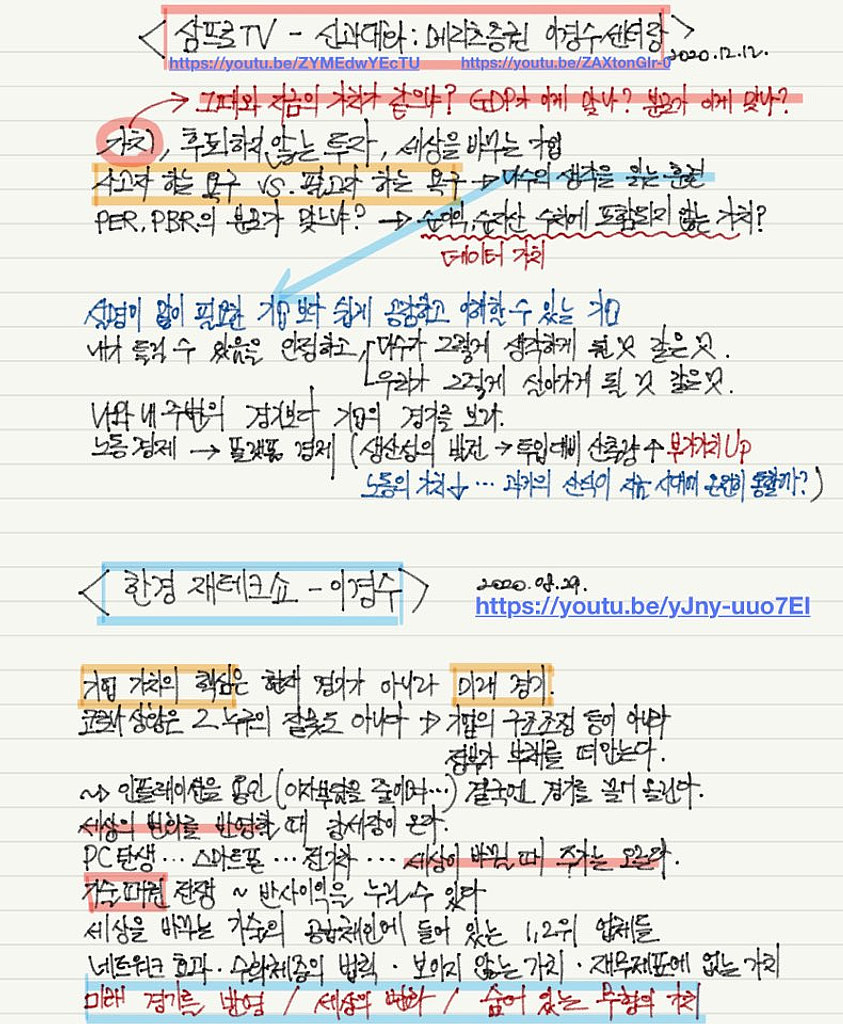 < 삼프로TV - 신과대화 : 메리츠증권 이경수 센터장 >
2020.12.12.
https://youtu.be/ZYMEdwYEcTU https://youtu.be/ZAXtonGlr-0
→ 그때와 지금의 가치가 같으냐? GDP가 이게 맞나? 분모가 이게 맞나?
가치, 후퇴하지 않는 투자, 세상을 바꾸는 기업
사고자 하는 욕구 vs. 팔고자 하는 욕구 → 다수의 생각을 읽는 훈련
PER, PBR의 분모가 맞느냐? → 순이익, 순자산 수치에 포함되지 않는 가치?
데이터 가치
설명이 많이 필요한 기업보다 쉽게 공감하고 이해할 수 있는 기업
내가 틀릴 수 있음을 인정하고, 다수가 그렇게 생각하게 될 것 같은 것.
우리가 그렇게 살아가게 될 것 같은 것.
나와 내 주변의 경기보다 기업의 경기를 보라.
노동 경제 → 플랫폼 경제 (생산성의 발전 → 투입 대비 산출량 ↑ 부가가치 Up
노동의 가치 ↓ … 과거의 산식이 지금 시대에 온전히 통할까?)
< 한경 재테크쇼 - 이경수 >
2020.08.29.
https://youtu.be/yJny-uuo7EI
기업 가치의 핵심은 현재 경기가 아니라 미래 경기.
코로나 상황은 그 누구의 잘못도 아니다 → 기업의 구조조정 등이 아니라
정부가 부채를 떠안는다.
~> 인플레이션을 용인 (이자부담을 줄이며…) 결국엔 경기를 끌어 올린다.
세상의 변화를 반영할 때 강세장이 온다.
PC탄생 … 스마트폰 … 전기차 … 세상이 바뀔 때 주가는 오른다.
기술패권 전쟁 ~ 반사이익을 누릴 수 있다
세상을 바꾸는 기술의 공급체인에 들어 있는 1, 2위 업체들
네트워크 효과 · 수확체증의 법칙 · 보이지 않는 가치 · 재무제표에 없는 가치
미래 경기를 반영 / 세상의 변화 / 숨어 있는 무형의 가치